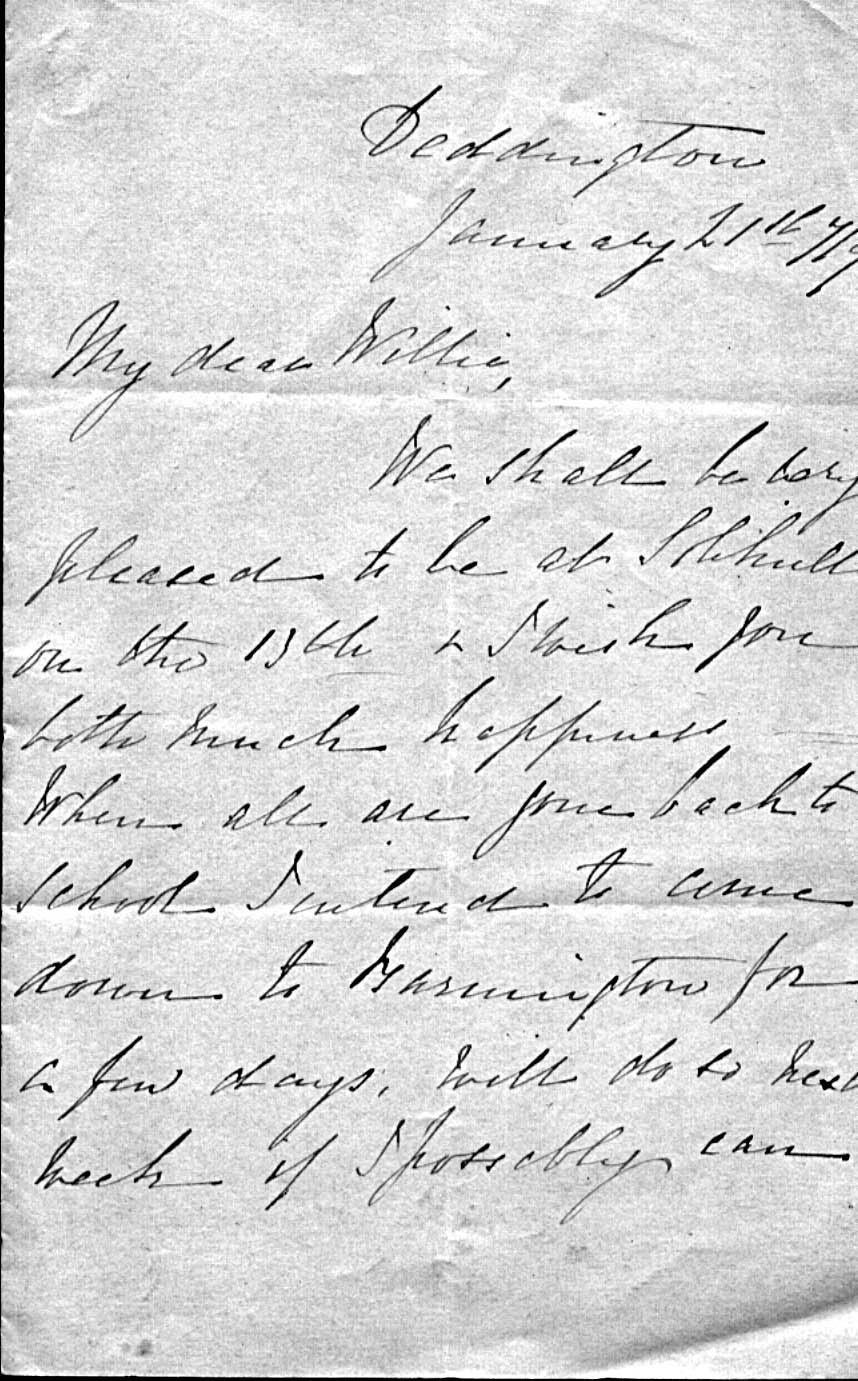 Deddington
January 21st /79
My dear Willie,
We shall be very
pleased to be at Solihull
on the 13th & I wish you
both much happiness
When all are gone back to
school I intend to come
down to Warmington for
a few days, will do so next
week if I possibly can